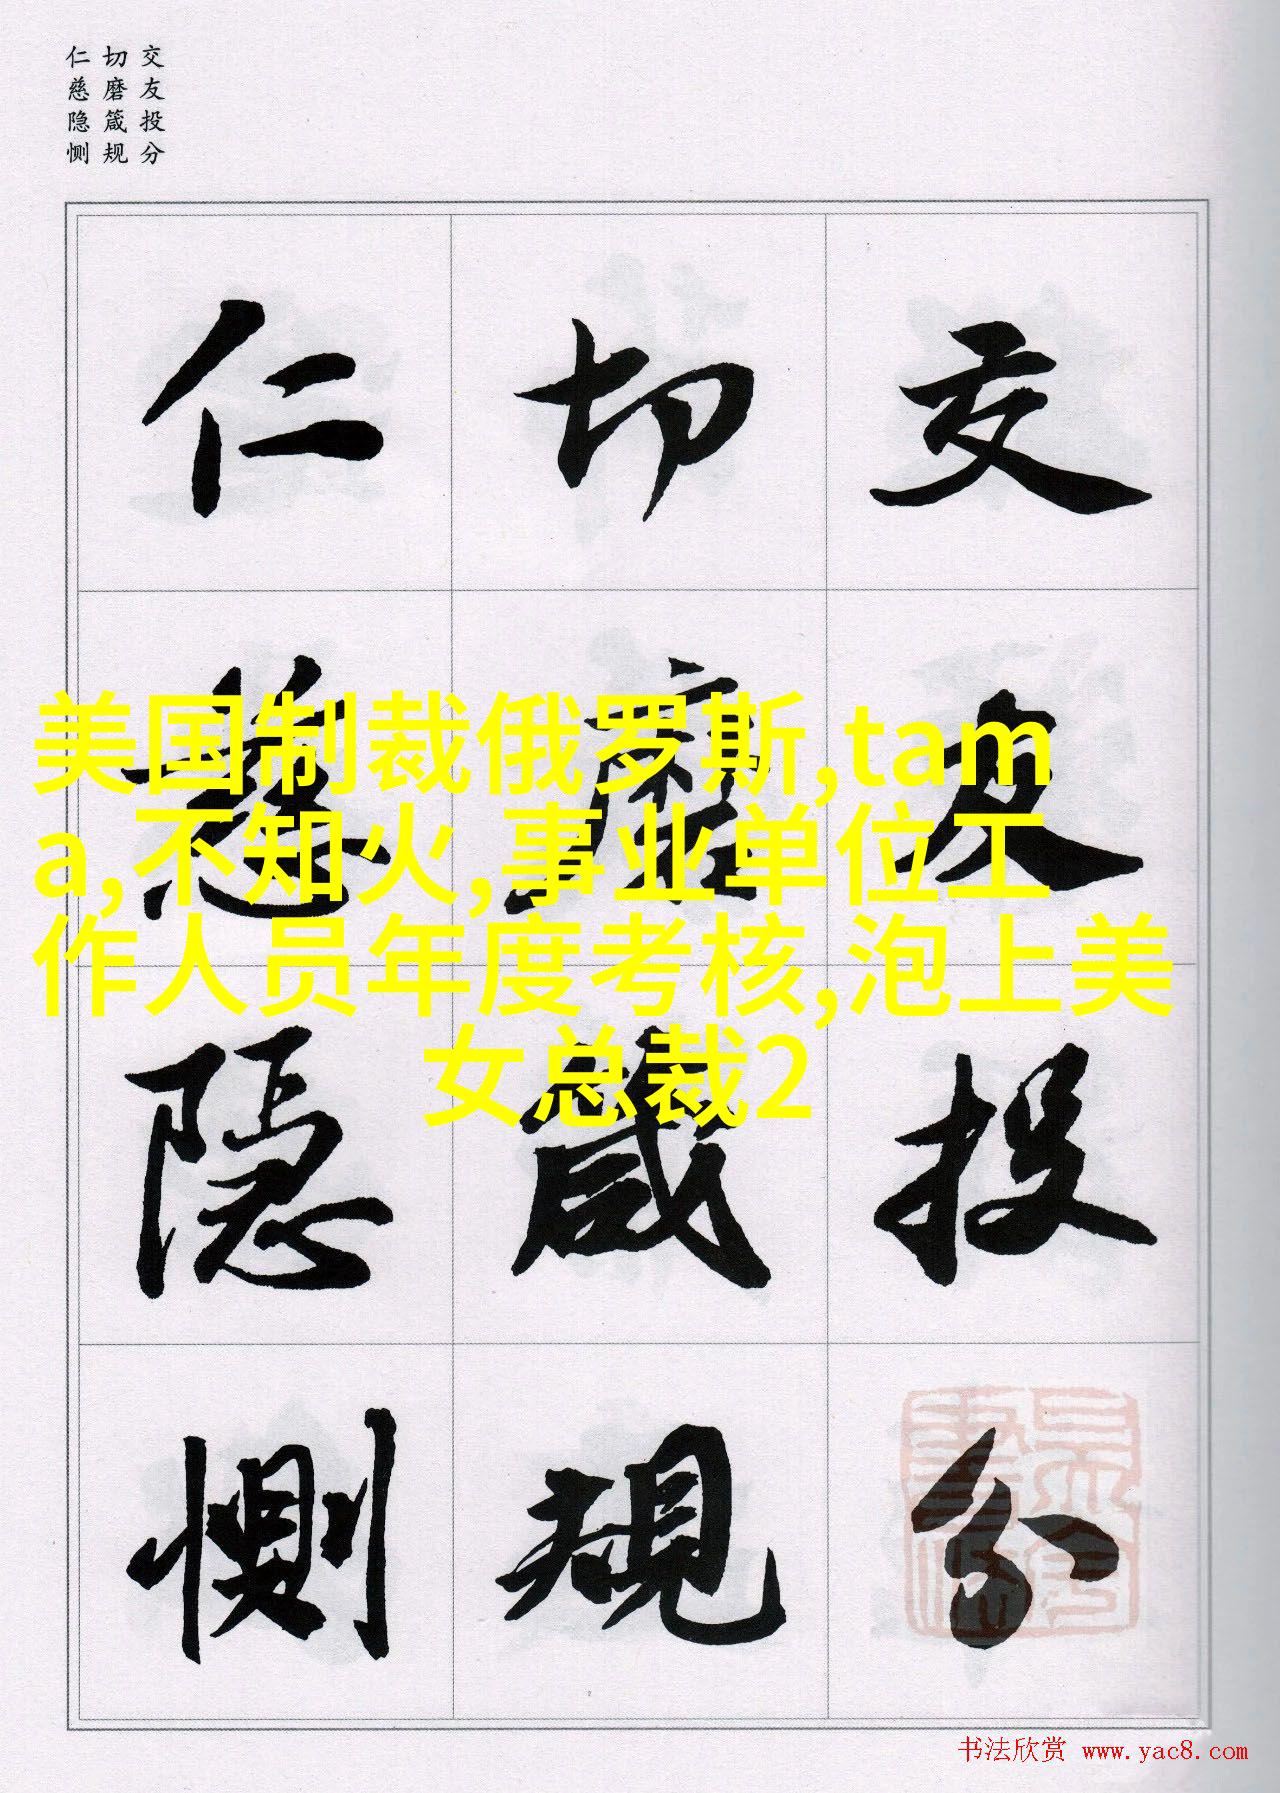 交友投分
切磨箴规
仁慈隐恻
交友投分
切磨箴规
仁慈隐恻
美国制裁俄罗斯,tam
a,不知火,事业单位工
作人员年度考核,泡上美
女总裁2
书法欣赏 www.yac8.com